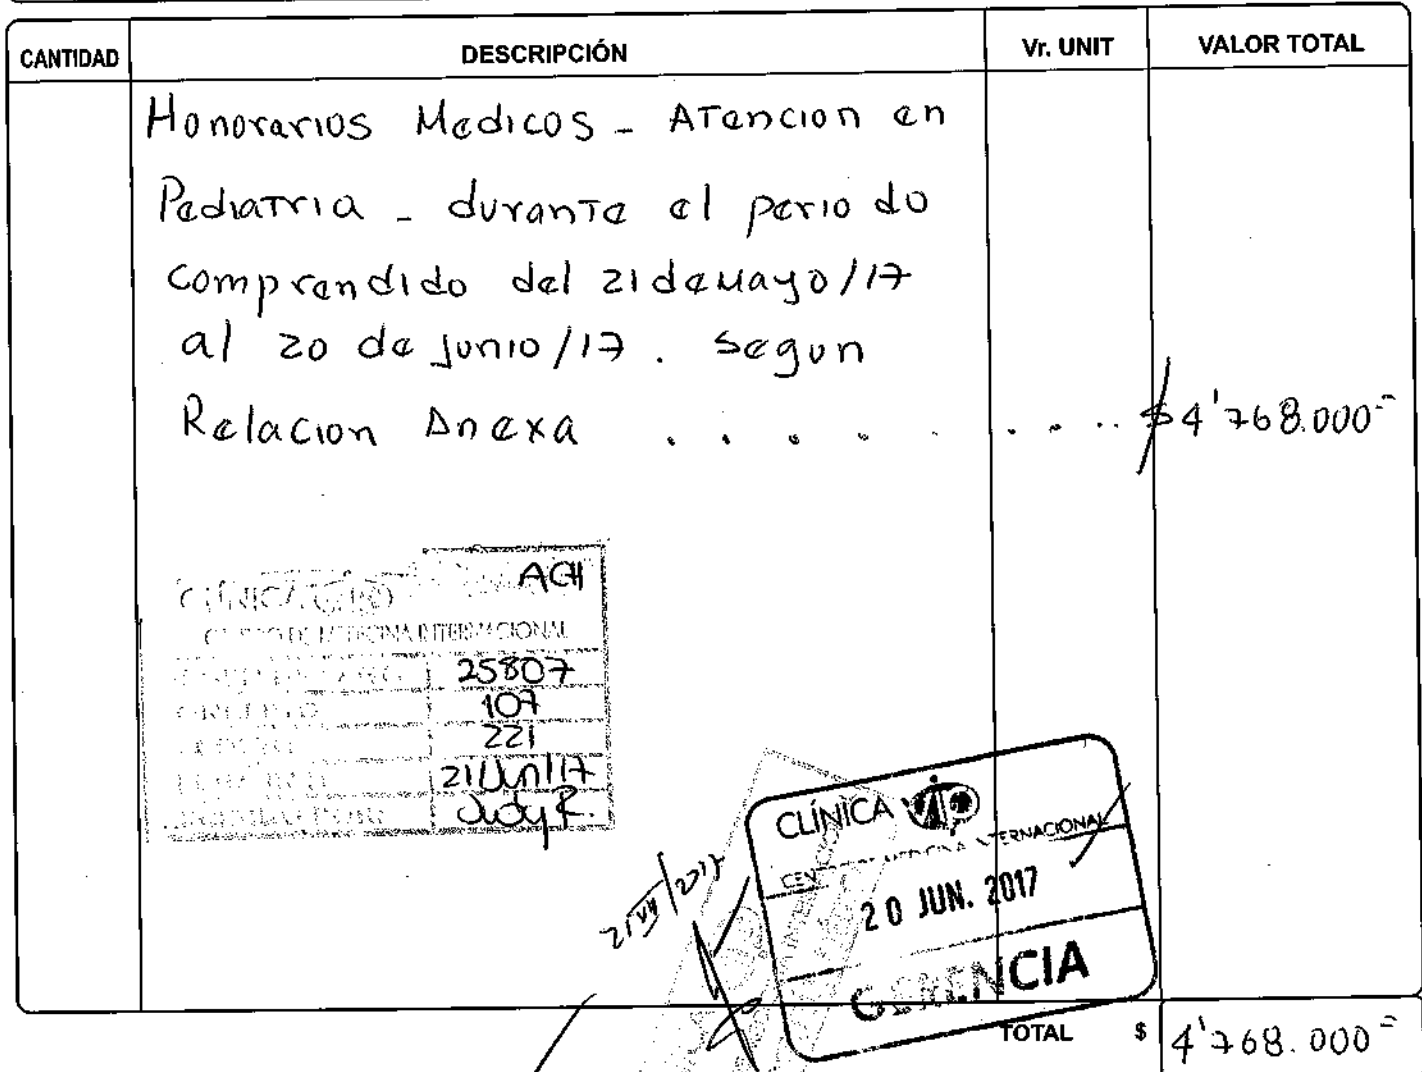 CANTIDAD DESCRIPCIÓN Vr. UNIT VALOR TOTAL
Honorarios Medicos - Atencion en
Pediatria - durante el periodo
comprendido del 21 de Mayo/17
al 20 de junio/17. segun
Relacion Anexa . . . . . . . . . $4'768.000=
ACH
CLÍNICA
CENTRO DE MEDICINA INTERNACIONAL
25807
107
221
21/Jun/17
Judy R.
CLÍNICA VIP
CENTRO DE MEDICINA INTERNACIONAL
20 JUN. 2017
GERENCIA
TOTAL $ 4'768.000=